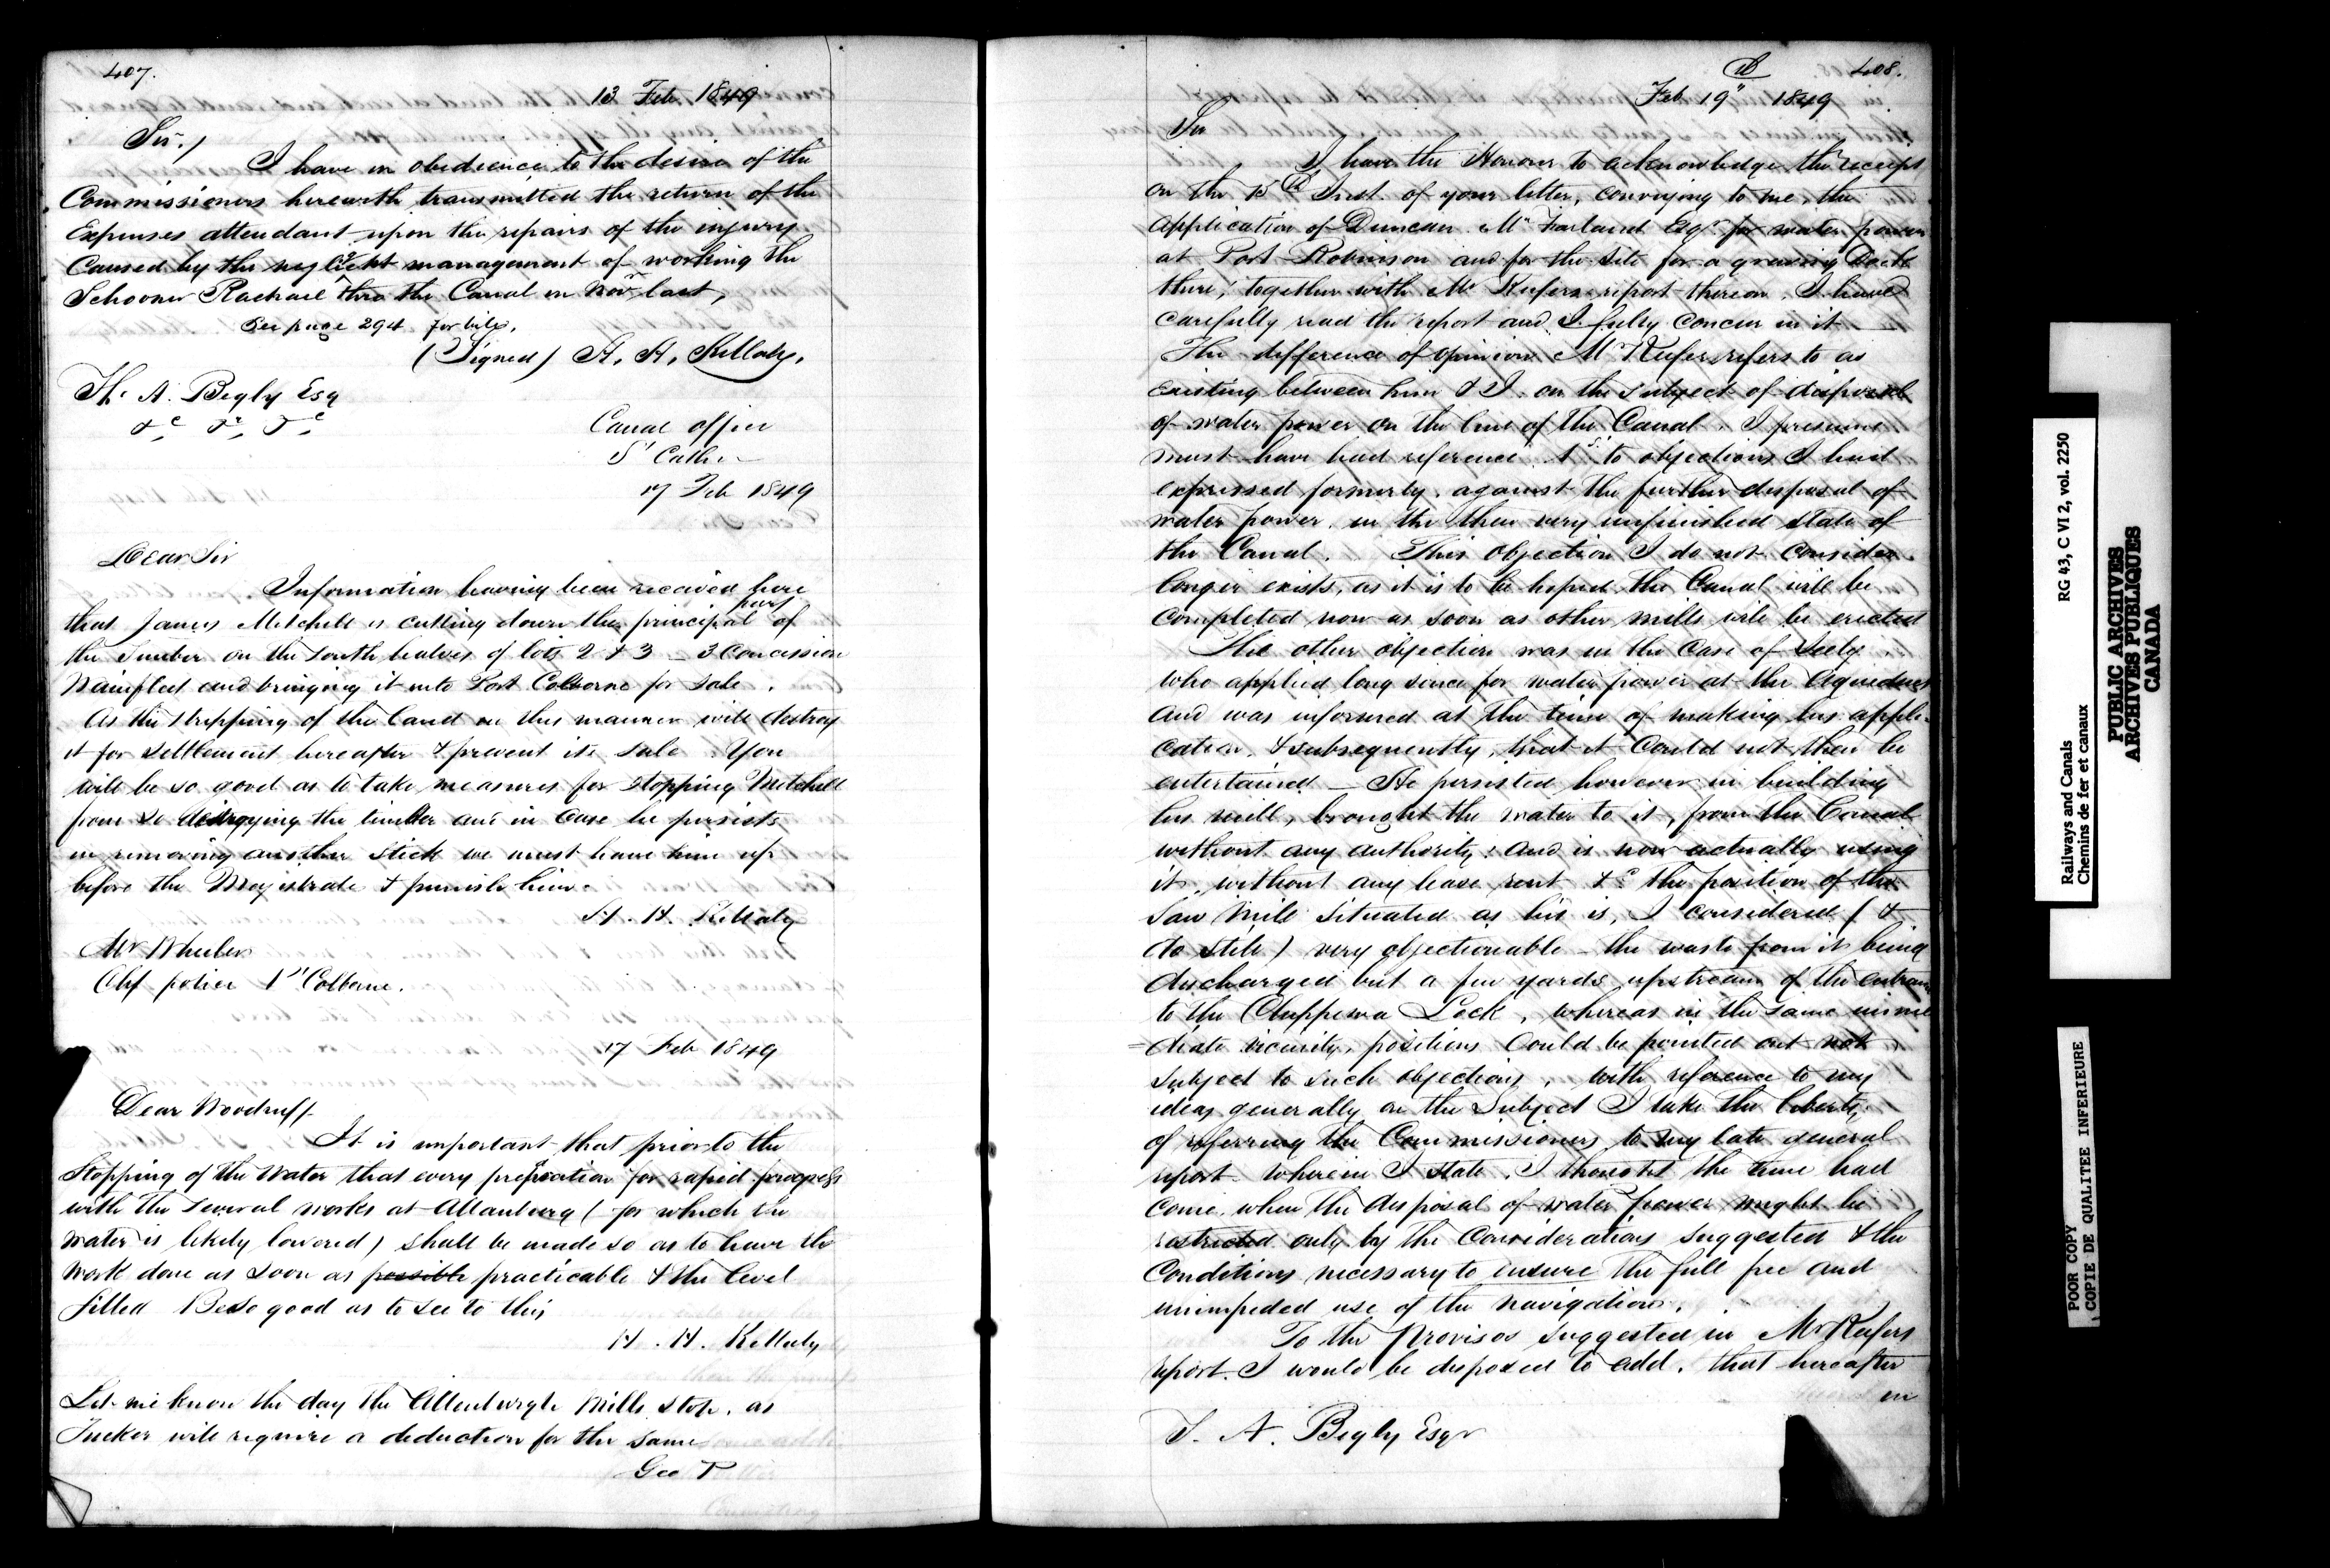 407.
13 Feb 1849
Sir,
I have in obedience to the desire of the
Commissioners herewith transmitted the return of the
Expenses attendant upon the repairs of the injury
Caused by the neglient management of working the
Schooner Rachael thro the Canal in Novr last,
See page 294 for bill,
(Signed) H. H. Killaly,
H. A. Begly Esq
&c &c &c
Canal office
St Cath
17 Feb 1849
Dear Sir
Information having been received here
that James Mitchell is cutting down the principal part of
the Timber on the South halves of lots 2 & 3 _ 3 Concession
Wainfleet and bringing it into Port Colborne for sale.
As the stripping of the land in this manner will destroy
it for settlement hereafter & prevent its sale You
will be so good as to take measures for stopping Mitchell
from so destroying the timber and in Case he persists
in removing another stick we must have him up
before the Magistrate & punish him.
H. H. Killaly
Mr Wheeler
Clk police Pt Colborne.
17 Feb 1849
Dear Woodruff
It is important that prior to the
Stopping of the Water that every prepration for rapid progress
with the several works at Allanburg (for which the
water is likely lowered) shall be made so as to have the
work done as soon as possible practicable & the level
filled Be so good as to see to this
H. H. Killaly
Let me know the day the Allenburgh Mills stop, as
Tucker will require a deduction for the same
Geo P
408.
Feb 19" 1849
Sir
I have the Honour to acknowledge the receipt
on the 15th Inst. of your letter, conveying to me, the
application of Duncan McFarland Esqr for water power
at Port Robinson and for the site for a graving Dock
there, together with Mr Keefers report thereon. I have
carefully read the report and I fully Concur in it
The difference of opinion Mr Keefer refers to as
existing between him & I. on the subject of disposal
of water power on the line of the Canal. I presume
must have had reference 1st to objections I had
expressed formerly. against the further disposal of
water power. in the then very unfinished state of
the Canal. This objection I do not consider
longer exists, as it is to be hoped the Canal will be
completed now as soon as other mills will be erected
The other objection was in the Case of Seely
who applied long since for water power at the Aqueduct
and was informed at the time of making his appli-
cation. & subsequently, that it Could not then be
entertained _ He persisted however in building
his mill, brought the water to it, from the Canal
without any authority: and is now actually using
it, without any lease rent &c the position of the
Saw Mill situated as his is, I considered (&
do still) very objectionable - the waste from it being
discharged but a few yards upstream of the entrance
to the Chippewa Lock, whereas in the same imme
=diate vicinity, positions Could be pointed out not
subject to such objections, With reference to my
ideas generally on the Subject I take the liberty
of referring the Commissioners to my late general
report wherein I state, I thought the time had
come, when the disposal of water power might be
restricted only by the Considerations suggested & the
Conditions necessary to ensure the full free and
unimpeded use of the navigation.
To the Provisos suggested in Mr Keefers
report. I would be disposed to add, that hereafter
in
T. A. Begly Esqr
Railways and Canals
Chemins de fer et canaux
RG 43, C VI 2, vol. 2250
PUBLIC ARCHIVES
ARCHIVES PUBLIQUES
CANADA
POOR COPY
COPIE DE QUALITEE INFERIEURE